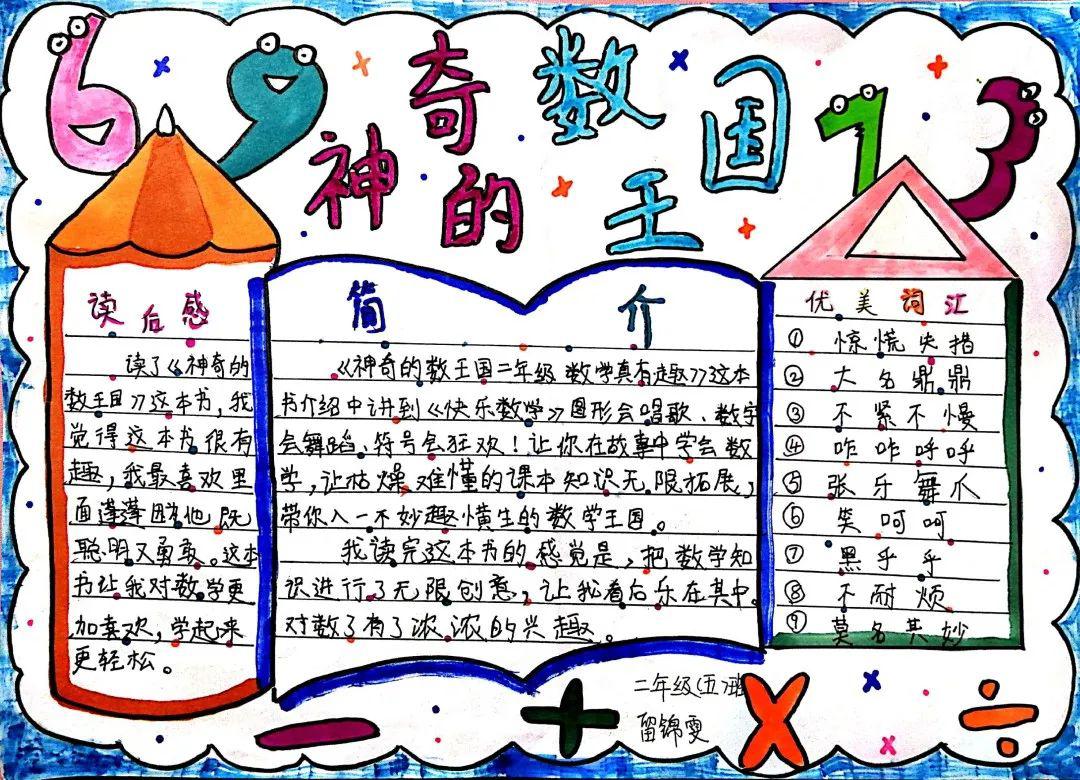 神奇的
数王国
读后感
读了《神奇的
数王国》这本书,我
觉得这本书很有
趣,我最喜欢里
面蓬蓬因为他既
聪明又勇敢。这本
书让我对数学更
加喜欢,学起来
更轻松。
简介
《神奇的数王国二年级 数学真有趣》这本
书介绍中讲到《快乐数学》图形会唱歌、数字
会舞蹈、符号会狂欢!让你在故事中学会数
学,让枯燥难懂的课本知识无限拓展,
带你入一不妙趣横生的数学王国。
我读完这本书的感觉是,把数学知
识进行了无限创意,让我看后乐在其中
对数了有了浓浓的兴趣。
优美词汇
① 惊慌失措
② 大名鼎鼎
③ 不紧不慢
④ 咋咋呼呼
⑤ 张牙舞爪
⑥ 笑呵呵
⑦ 黑乎乎
⑧ 不耐烦
⑨ 莫名其妙
二年级(五)班
留锦雯
6 9 7 3
- + × ÷